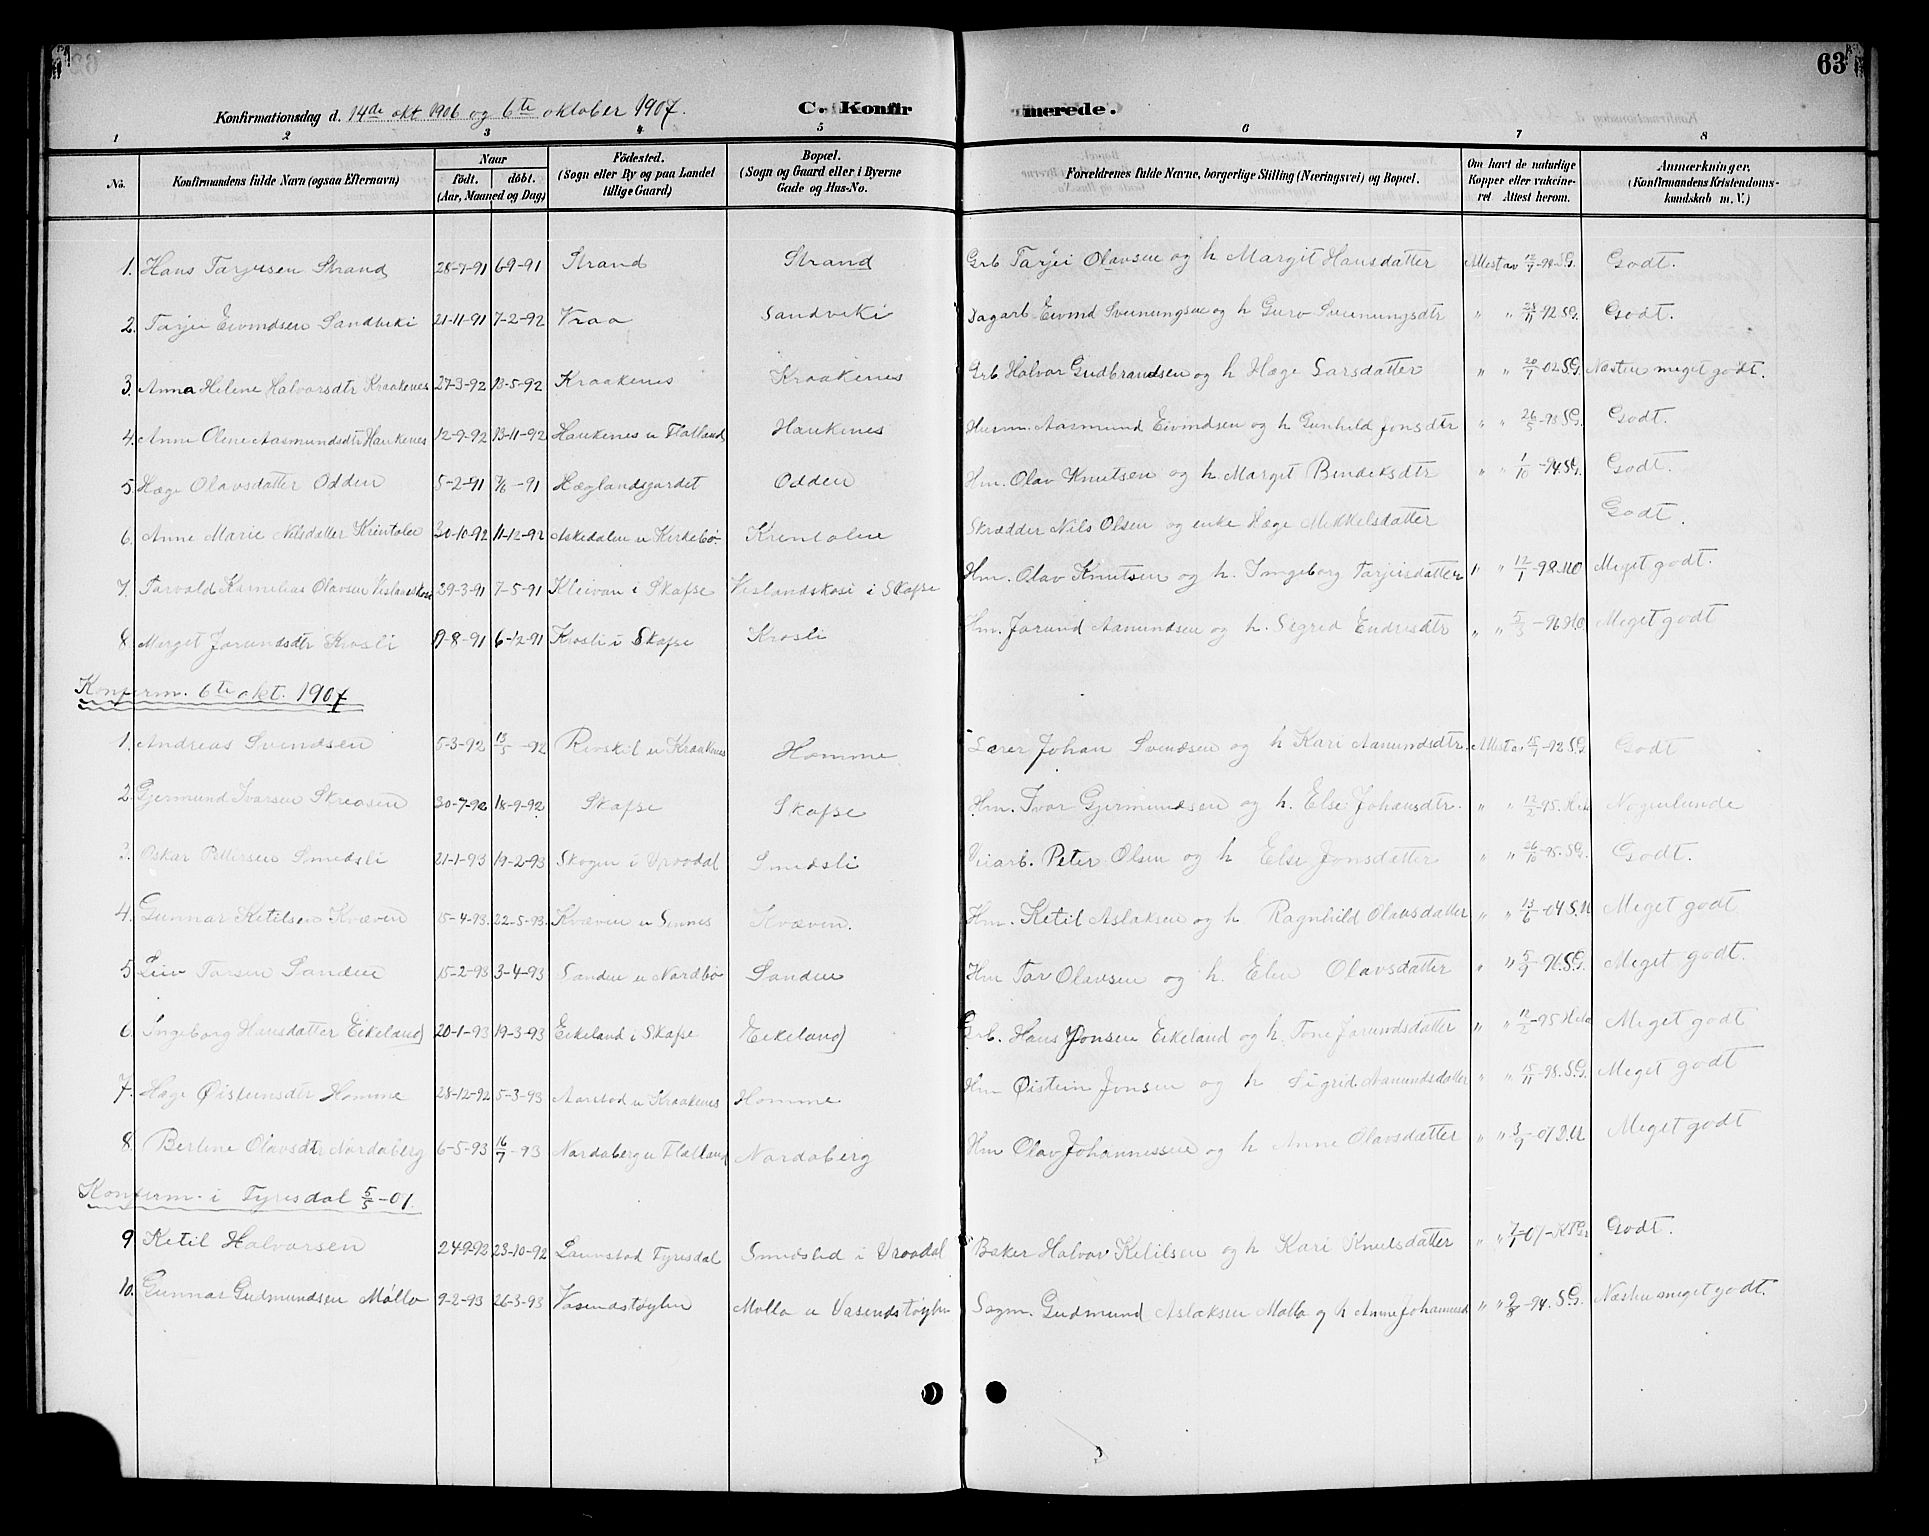 63
Konfirmationsdag d. 14de okt 1906 og 6te oktober 1907. C. Konfirmerede.
1 2 3 4 5 6 7 8
No. Konfirmandens fulde Navn (ogsaa Efternavn) Naar födt. döbt. (Aar, Maaned og Dag) Födested. (Sogn eller By og paa Landet tillige Gaard) Bopæl. (Sogn og Gaard eller i Byerne Gade og Hus-No. Forældrenes fulde Navne, borgerlige Stilling (Næringsvei) og Bopæl. Om havt de naturlige Kopper eller vakcineret Attest herom. Anmærkninger. (Konfirmandens Kristendomskundskab m. V.)
1. Hans Tarjeisen Strand 28-7-91 6-9-91 Strand Strand Grb Tarjei Olavsen og h Margit Hansdatter Attest av 12/7-94 S.G. Godt.
2. Tarjei Eivindsen Sandviki 21-11-91 7-2-92 Vraa Sandviki Dagarb. Eivind Sveinungsen og h Guro Sveinungsdtr " " 28/11-92 S.G. Godt.
3. Anna Helene Halvorsdtr Kraakenes 27-3-92 13-5-92 Kraakenes Kraakenes Grb Halvor Gudbrandsen og h Hæge Larsdatter " " 20/7-02 S.G. Næsten meget godt.
4. Anne Oline Aasmundsdtr Haukenes 12-9-92 13-11-92 Haukenes u Flatland Haukenes Husm. Aasmund Eivindsen og h Gunhild Jonsdtr " " 26/5-93 S.G. Godt.
5. Hæge Olavsdatter Odden 5-2-91 7/6-91 Hæglandsgardet Odden Hm. Olav Knutsen og h. Margit Bendiksdtr " " 1/10-94 S.G. Godt.
6. Anne Marie Nilsdatter Krintolen 30-10-92 11-12-92 Askedalen u Kirkebø. Krintolen Skrædder Nils Olsen og enke Hæge Mikkelsdatter Godt.
7. Tarvald Karnelius Olavsen Veslandskasi 29-3-91 7-5-91 Kleivan i Skafse Veslandskasi i Skafse Hm. Olav Knutsen og h. Ingeborg Tarjeisdatter " " 12/1-98 Meget godt.
8. Merget Jorundsdtr Krosli 9-8-91 6-12-91 Krosli i Skafse Krosli Hm. Jorund Aamundsen og h. Sigrid Endresdtr " " 5/3-96 Meget godt
Konferm. 6te okt. 1907
1. Andreas Svendsen 5-3-92 13/5-92 Rivskil u Kraakenes Homme Lærer Johan Svendsen og h Kari Aamundsdtr. Attest av 15/1-92 S.G. Godt
2. Gjermund Ivarsen Skreosen 30-7-92 18-9-92 Skafse Skafse Hm. Ivar Gjermundsen og h. Else Johansdtr. " " 12/2-95. Nogenlunde
3. Oskar Pettersen Smedsli 21-1-93 19-2-93 Skogen i Vraadal Smedsli Veiarb. Peter Olsen og h Else Jonsdatter " " 26/10-95. S.G. Godt.
4. Gunnar Ketilsen Kvæven 15-4-93. 22-5-93. Kvæven u Sinnes Kvæven. Hm. Ketil Aslaksen og h Ragnhild Olavsdatter " " 13/6-04 Meget godt
5. Liv Tarsen Sanden 15-2-93 3-4-93 Sanden u Nordbø Sanden Hm Tor Olavsen og h. Elen Olavsdatter " " 5/9-96 S.G. Meget godt.
6. Ingeborg Hansdatter Eikeland 20-1-93 19-3-93 Eikeland i Skafse Eikeland Grb. Hans Jonsen Eikeland og h. Tone Jorundsdatter " " 12/2-95 Meget godt
7. Hæge Øisteinsdtr Homme 28-12-92 5-3-93 Aarstod u Kraakenes Homme Hm Øistein Jonsen og h Sigrid Aamundsdatter " " 15/11-98. S.G. Meget godt
8. Berline Olavsdtr Nordaberg 6-5-93 16/7-93 Nordaberg u Flatland Nordaberg Hm Olav Johannessen og h Anne Olavsdatter " " 3/9-07 Meget godt
Konferm. i Tyrisdal 5/5-07.
9 Ketil Halvorsen 24-9-92 23-10-92 Launstad Tyrisdal Smedslid i Vraadal Baker Halvor Ketilsen og h Kari Knutsdatter " " 7/1-07- Godt.
10. Gunnar Gudmundsen Mollo 9-2-93 26-3-93 Vasendstøylen Mollo u Vasendstøylen Sagm. Gudmund Aslaksen Mollo og h Anne Johannesd " " 9/8-94. S.G. Næsten meget godt.